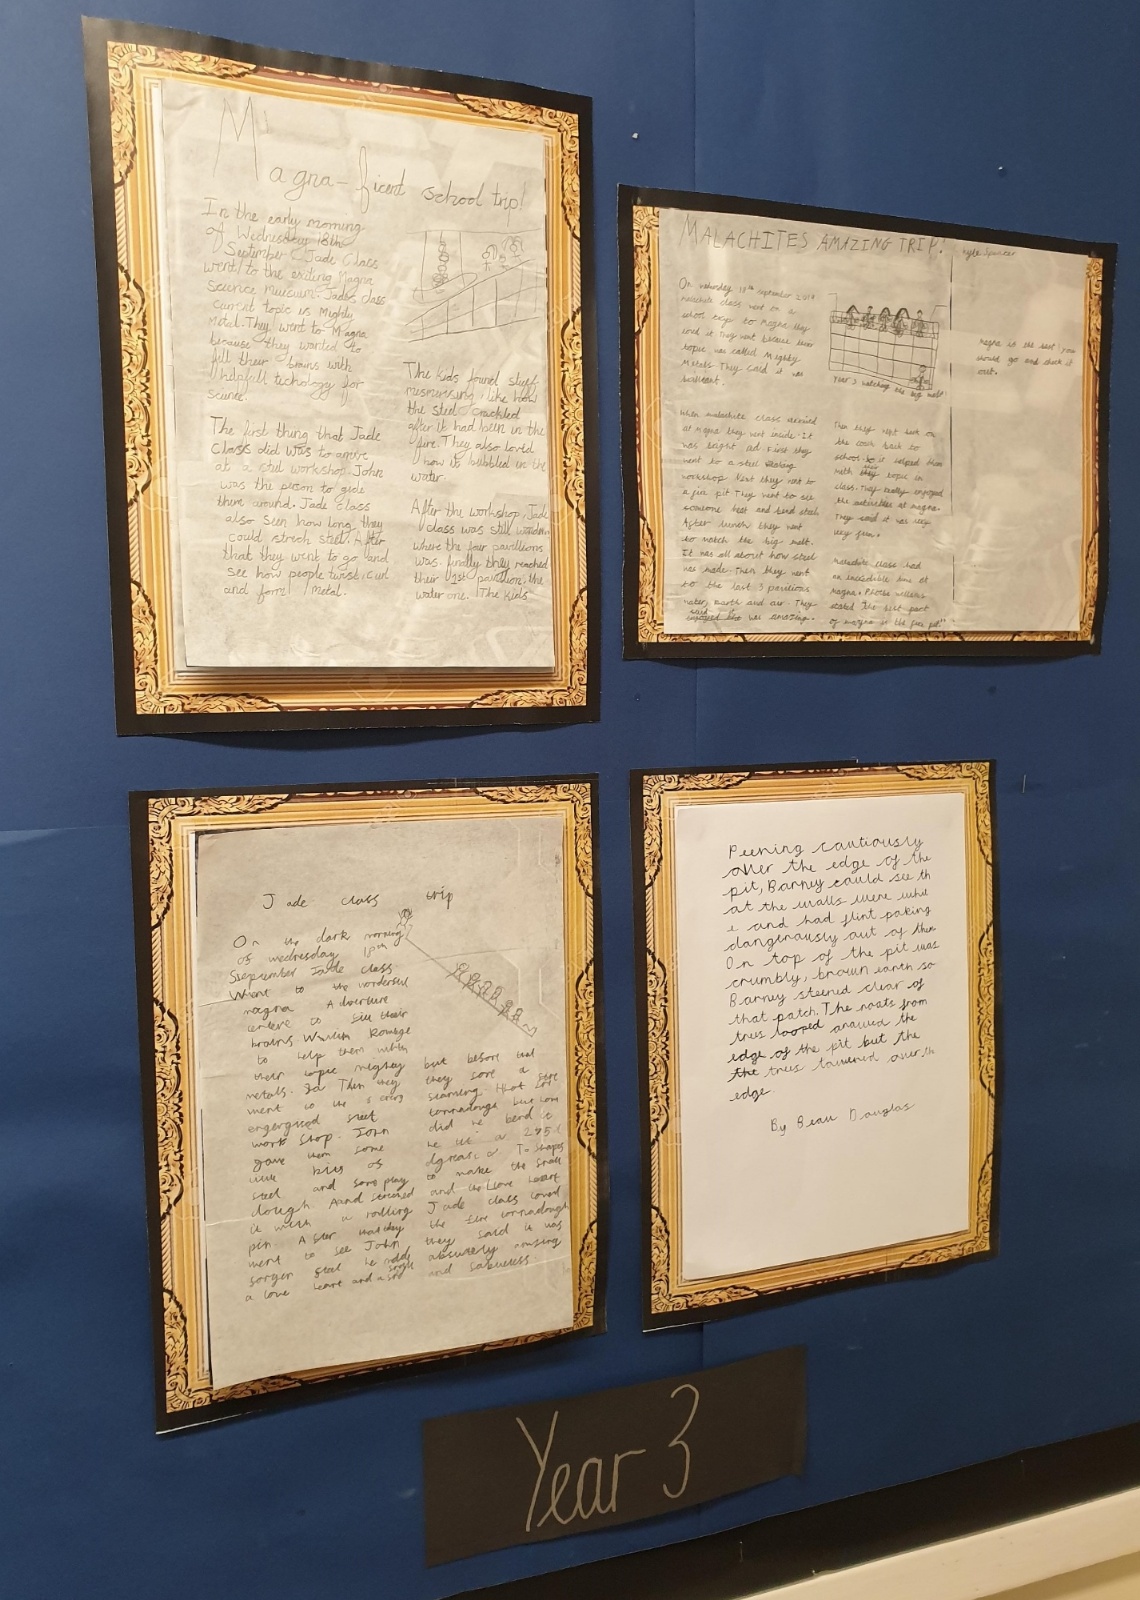 Magna-ficent school trip!
In the early morning
of Wednesday 18th
September Jade Class
went to the exiting Magna
science museum. Jades class
current topic is Mighty
Metal. They went to Magna
because they wanted to
fill their brains with
techology for
science.
The first thing that Jade
Class did was to arrive
at a steel workshop. John
was the person to gide
them around. Jade Class
also seen how long they
could strech steel. After
that they went to go and
see how people twist, curl
and form metal.
The Kids found stuff
mesmorising like how
the steel crackled
after it had been in the
fire. They also loved
how it bubbled in the
water.
After the workshop, Jade
class was still
where the four pavillions
was. finally they reached
their 1st pavilion, the
water one. The Kids
MALACHITES AMAZING TRIP!
Kyle Spencer
On wednesday 18th september 2019
malachite class went on a
school trip to Magna they
loved it They went because their
topic was called Mighty
Metals. They said it was
Year 3 watching the big melt
When malachite class arrived
at Magna they went inside. It
was bright red. First they
went to a steel
workshop Next they went to
a fire pit They went to see
someone heat and bend steel
After lunch they went
to watch the big melt.
It was all about how steel
was made. Then they went
to the last 3 pavilions
water, earth and air. They
said was amazing.
Then they went back on
the coach back to
school so it helped them
with their topic in
class. They really enjoyed
the activities at magna.
They said it was very
very fun.
Malachite class had
an incredible time at
magna. Phoebe
stated "the best part
of magna is the fire pit!"
Magna is the best! you
should go and check it
out.
Jade class trip
On the dark morning
of wednesday 18th
September Jade Class
Went to the
magna Adventure
to fill their
brains.
to help them with
their topic mighty
metals. Then they
went to the
steel
work shop. John
gave them some
bits of
steel and some play
dough And streched
it with a rolling
pin. After that they
went to see John
steel he made
a love heart and a
but before that
they sore a
fire
tornadough but
did he bend it
he
dgreas T-shapes
to make the snail
and the love heart
Jade class loved
the fire tornadough
they said it was
absutely amazing
and
Peering cautiously
over the edge of the
pit, Barney could see th
at the walls were whit
e and had flint poking
dangerously out of them
On top of the pit was
crumbly, brown earth so
Barney steered clear of
that patch. The roots from
trees looped around the
edge of the pit but the
the trees towered over th
edge.
By Beau Douglas
Year 3